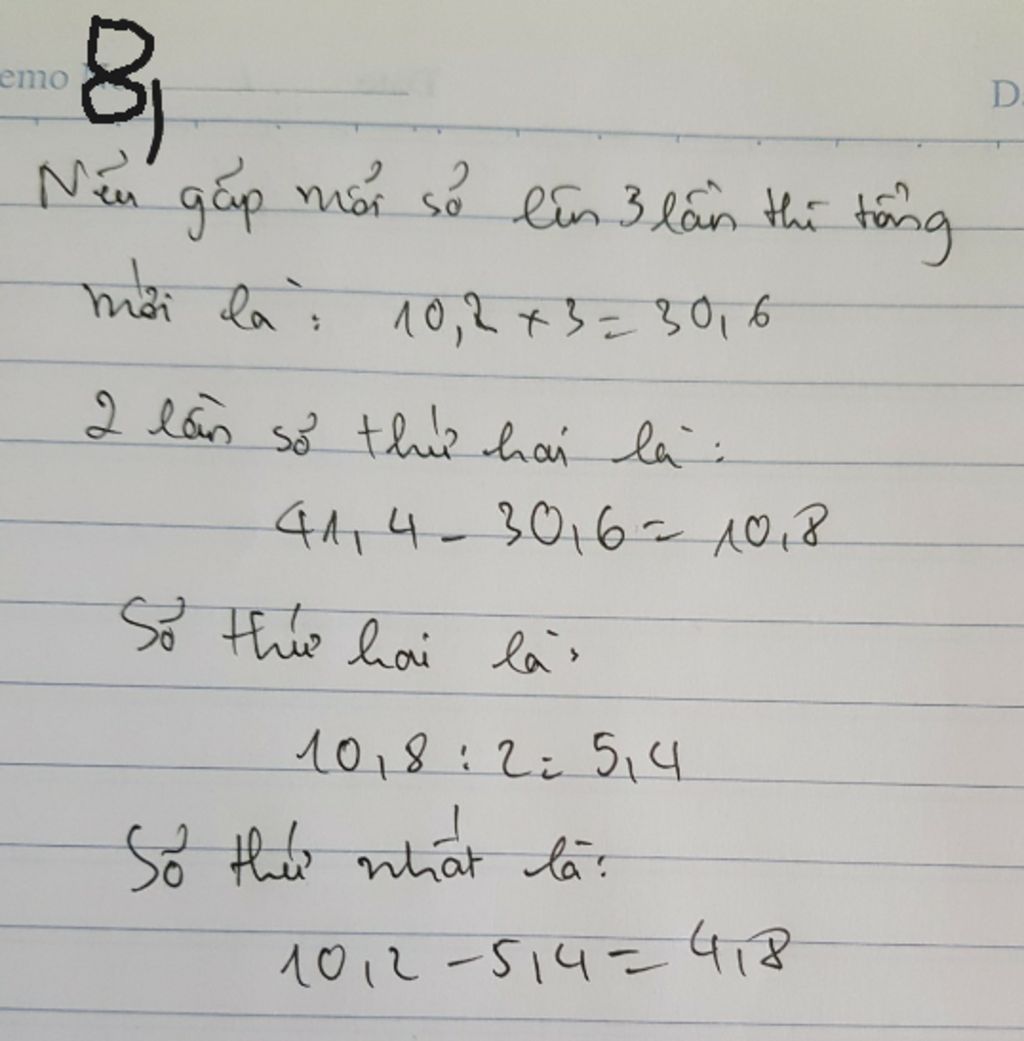 emo N
8,
D
Nếu gấp mỗi số lên 3 lần thì tổng
mới là: 10,2 × 3 = 30,6
2 lần số thứ hai là:
41,4 - 30,6 = 10,8
Số thứ hai là:
10,8 : 2 = 5,4
Số thứ nhất là:
10,2 - 5,4 = 4,8